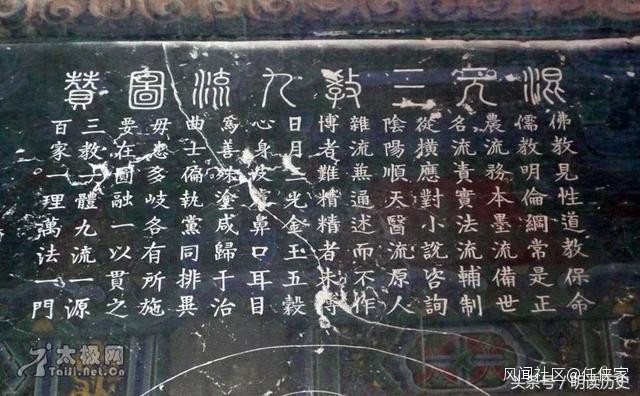 混元三教九流圖贊
佛教見性道教保命
儒教明倫綱常是正
農流務本墨流備世
名流責實法流輔制
從橫應對小說咨詢
陰陽順天醫流原人
雜流兼通述而不作
博者難精精者未博
日月三光金玉五穀
心身皮鼻口耳目
爲善殊塗咸歸于治
曲士偏執黨同排異
毋患多岐各有所施
要在圓融一以貫之
三教一體九流一源
百家一理萬法一門
太极网
Taiji.Net.Cn
风闻社区@任侠客
头条号 / 明读历史